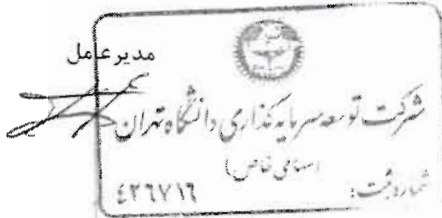 مدیرعامل
شرکت توسعه سرمایه گذاری دانشگاه تهران
(سهامی خاص)
شماره ثبت: ٤٢٦٧١٦